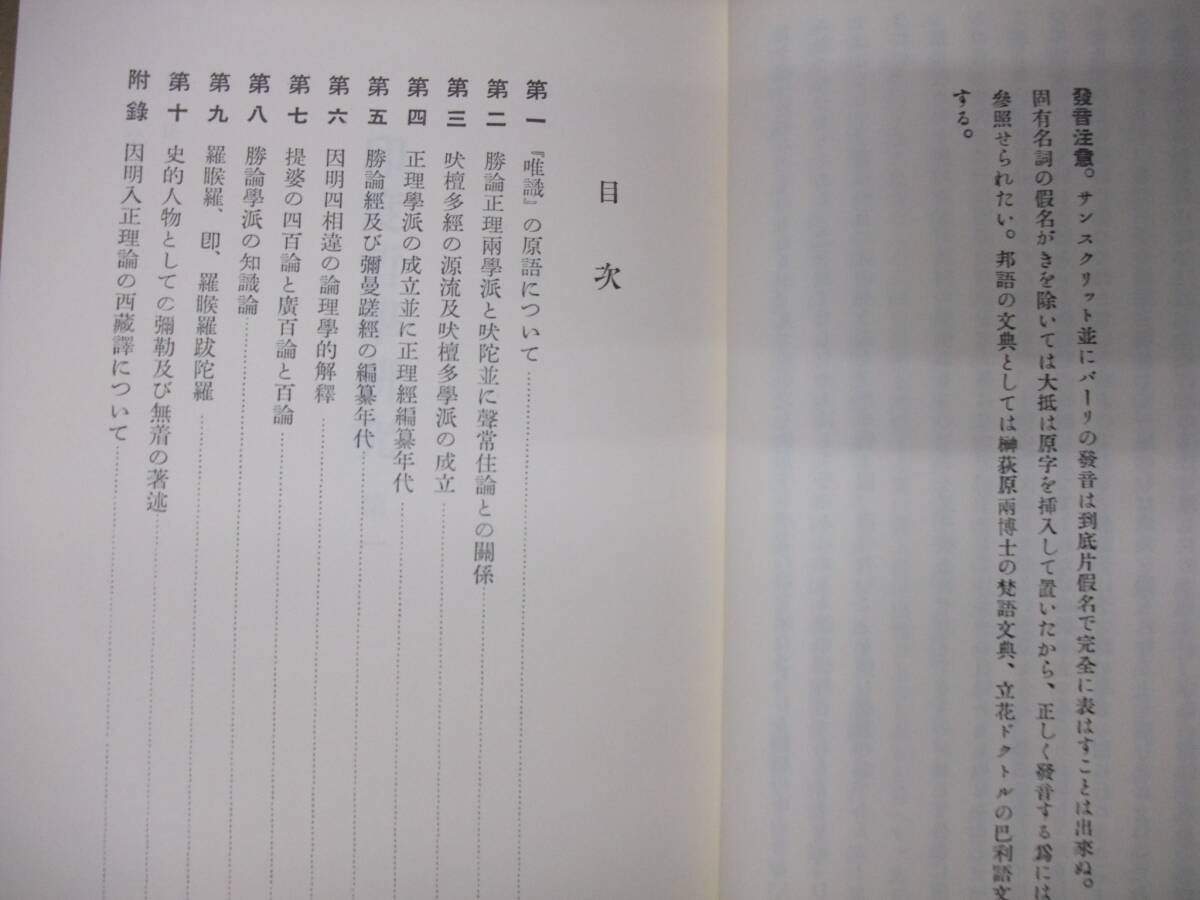 發音注意。サンスクリット並にパーリの發音は到底片假名で完全に表はすことは出來ぬ。
固有名詞の假名がきを除いては大抵は原字を挿入して置いたから、正しく發音する爲には
參照せられたい。邦語の文典としては榊荻原兩博士の梵語文典、立花ドクトルの巴利語文
する。
目次
第一 『唯識』の原語について
第二 勝論正理兩學派と吠陀並に聲常住論との關係
第三 吠檀多經の源流及吠檀多學派の成立
第四 正理學派の成立並に正理經編纂年代
第五 勝論經及び彌曼蹉經の編纂年代
第六 因明四相違の論理學的解釋
第七 提婆の四百論と廣百論と百論
第八 勝論學派の知識論
第九 羅睺羅、卽、羅睺羅跋陀羅
第十 史的人物としての彌勒及び無着の著述
附錄 因明入正理論の西藏譯について